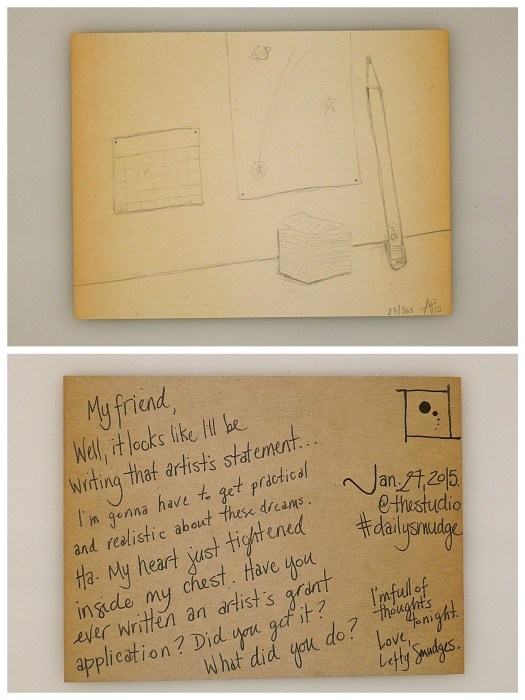 27/365
My friend,
Well, it looks like I'll be
writing that artist's statement...
I'm gonna have to get practical
and realistic about these dreams.
Ha. My heart just tightened
inside my chest. Have you
ever written an artist's grant
application? Did you get it?
What did you do?
Jan. 27, 2015.
@thestudio
#dailysmudge
I'm full of
thoughts
tonight.
Love,
Lefty Smudges.